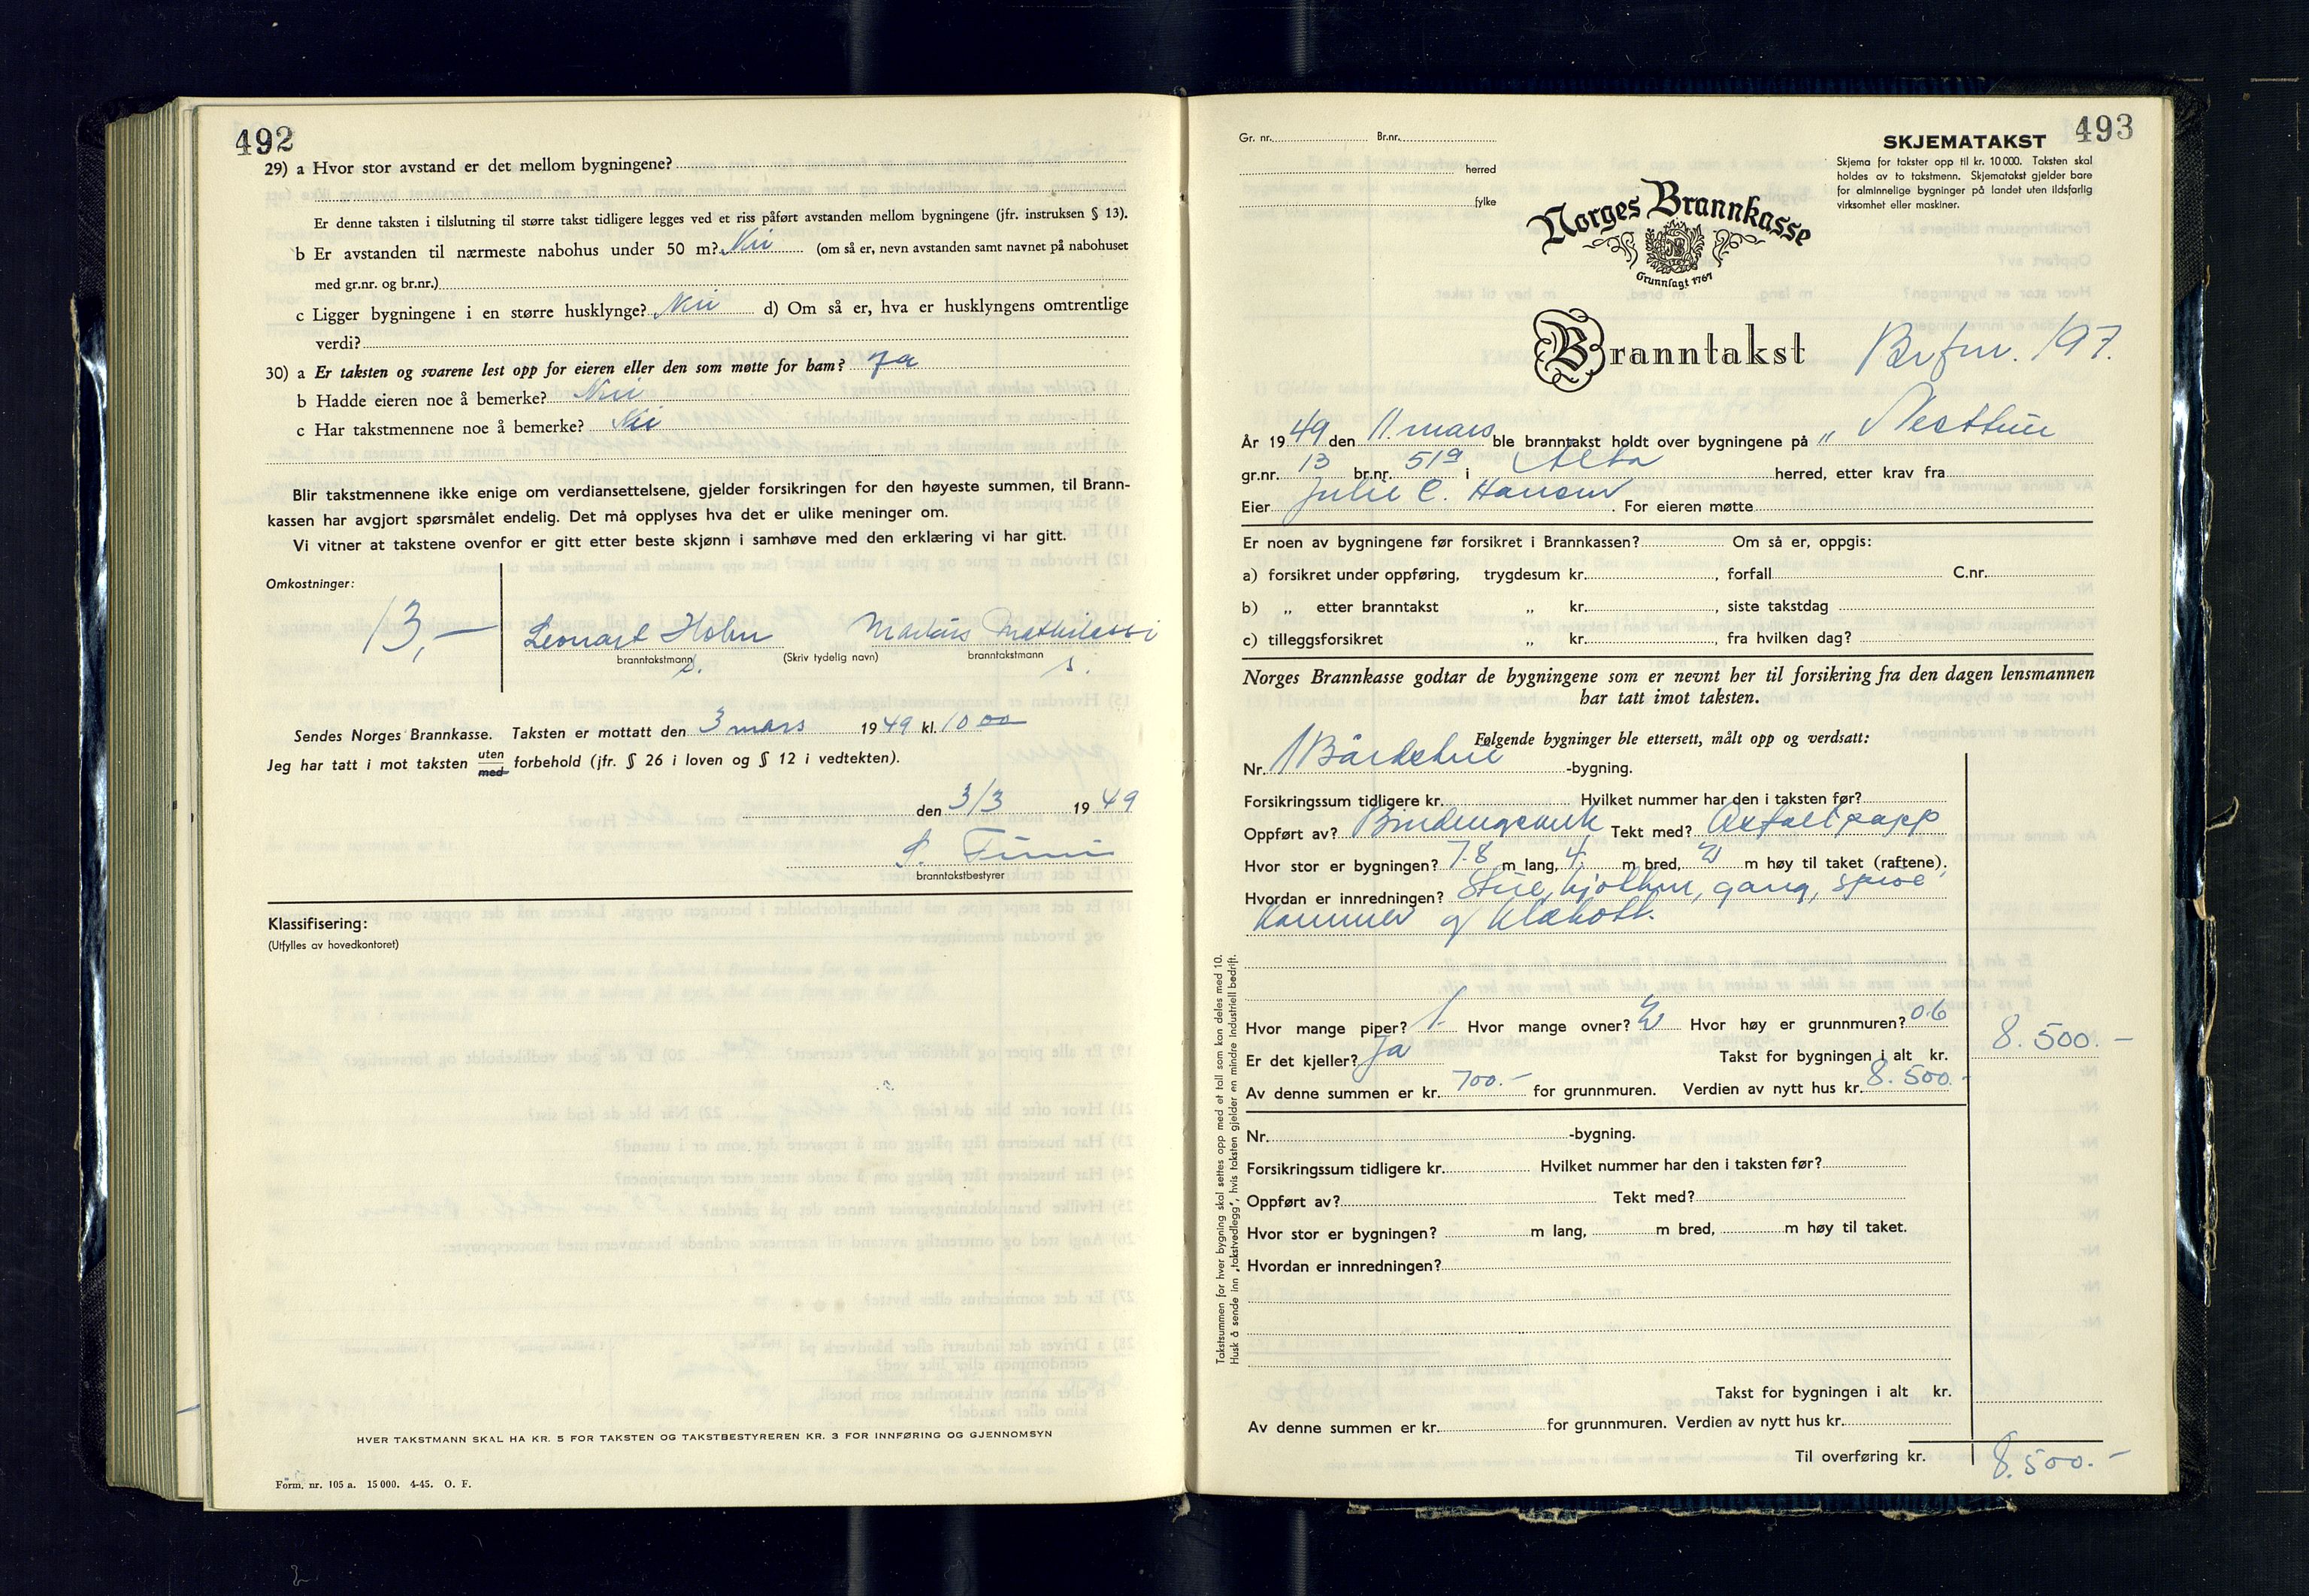 492
29) a Hvor stor avstand er det mellom bygningene?
Er denne taksten i tilslutning til større takst tidligere legges ved et riss påført avstanden mellom bygningene (jfr. instruksen § 13).
b Er avstanden til nærmeste nabohus under 50 m? Nei (om så er, nevn avstanden samt navnet på nabohuset
med gr.nr. og br.nr.)
c Ligger bygningene i en større husklynge? Nei d) Om så er, hva er husklyngens omtrentlige
verdi?
30) a Er taksten og svarene lest opp for eieren eller den som møtte for ham? Ja
b Hadde eieren noe å bemerke? Nei
c Har takstmennene noe å bemerke? Nei
Blir takstmennene ikke enige om verdiansettelsene, gjelder forsikringen for den høyeste summen, til Brann-
kassen har avgjort spørsmålet endelig. Det må opplyses hva det er ulike meninger om.
Vi vitner at takstene ovenfor er gitt etter beste skjønn i samhøve med den erklæring vi har gitt.
Omkostninger:
13,—
Leonart Holm Markus Mathilassi
branntakstmann (Skriv tydelig navn) branntakstmann
s. s.
Sendes Norges Brannkasse. Taksten er mottatt den 3 mars 1949 kl. 10 00
Jeg har tatt i mot taksten uten med forbehold (jfr. § 26 i loven og § 12 i vedtekten).
den 3/3 1949
branntakstbestyrer
Klassifisering:
(Utfylles av hovedkontoret)
HVER TAKSTMANN SKAL HA KR. 5 FOR TAKSTEN OG TAKSTBESTYREREN KR. 3 FOR INNFØRING OG GJENNOMSYN
Form. nr. 105 a. 15 000. 4-45. O. F.
493
Gr. nr. Br.nr.
herred
fylke
SKJEMATAKST
Skjema for takster opp til kr. 10 000. Taksten skal
holdes av to takstmenn. Skjematakst gjelder bare
for alminnelige bygninger på landet uten ildsfarlig
virksomhet eller maskiner.
Norges Brannkasse
Grunnlagt 1767
Branntakst Br fnr. 197.
År 1949 den 11. mars ble branntakst holdt over bygningene på „ Nesttun
gr.nr. 13 br.nr. 519 i Alta herred, etter krav fra
Eier Julie C. Hansen. For eieren møtte
Er noen av bygningene før forsikret i Brannkassen? Om så er, oppgis:
a) forsikret under oppføring, trygdesum kr. , forfall C.nr.
b) „ etter branntakst „ kr. , siste takstdag
c) tilleggsforsikret „ kr. , fra hvilken dag?
Norges Brannkasse godtar de bygningene som er nevnt her til forsikring fra den dagen lensmannen
har tatt imot taksten.
Følgende bygninger ble ettersett, målt opp og verdsatt:
Nr. 1 Bårdehus -bygning.
Forsikringssum tidligere kr. Hvilket nummer har den i taksten før?
Oppført av? Bindingsverk Tekt med? Asfaltpapp
Hvor stor er bygningen? 7.8 m lang, 4. m bred, m høy til taket (raftene).
Hvordan er innredningen? Stue, kjøkken, gang, spise
kammer og klekott.
Hvor mange piper? 1. Hvor mange ovner? 2 Hvor høy er grunnmuren? 0.6
Er det kjeller? Ja Takst for bygningen i alt kr. 8.500.—
Av denne summen er kr. 700.— for grunnmuren. Verdien av nytt hus kr. 8.500.—
Nr. -bygning.
Forsikringssum tidligere kr. Hvilket nummer har den i taksten før?
Oppført av? Tekt med?
Hvor stor er bygningen? m lang, m bred, m høy til taket.
Hvordan er innredningen?
Takst for bygningen i alt kr.
Av denne summen er kr. for grunnmuren. Verdien av nytt hus kr.
Til overføring kr. 8.500.—
Takstsummen for hver bygning skal settes opp med et tall som kan deles med 10.
Husk å sende inn „takstvedlegg", hvis taksten gjelder en mindre industriell bedrift.